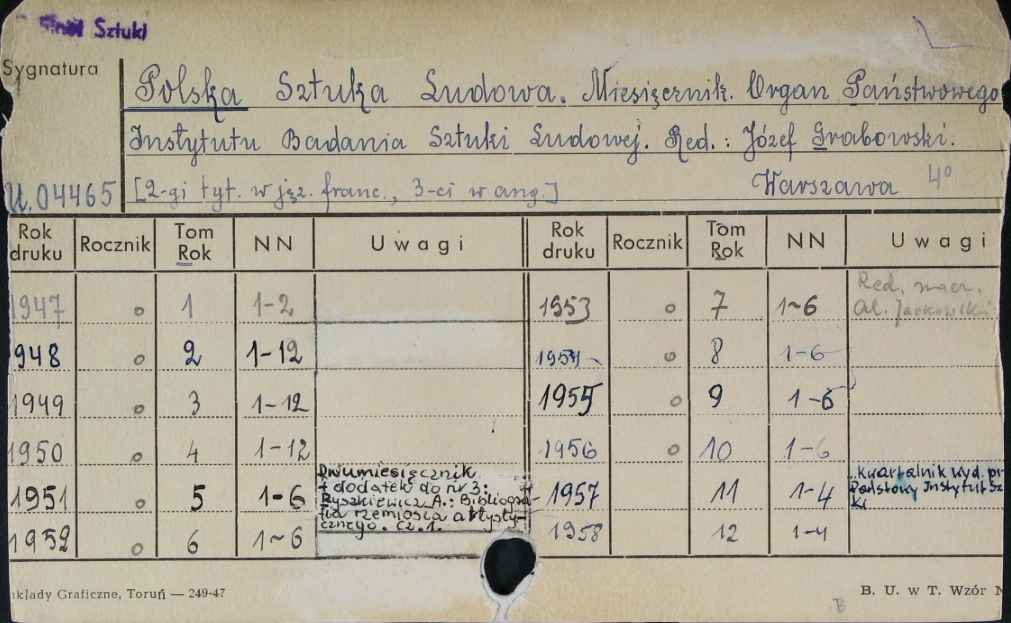 Sztuki
Sygnatura
Polska Sztuka Ludowa. Miesięcznik. Organ Państwowego
Instytutu Badania Sztuki Ludowej. Red.: Józef Grabowski.
U.04465 [2-gi tyt. w jęz. franc., 3-ci w ang.] Warszawa 4°
Rok druku Rocznik Tom Rok NN Uwagi Rok druku Rocznik Tom Rok NN Uwagi
1947 o 1 1-2 1953 o 7 1-6 Red. nacz. Al. Jackowski
948 o 2 1-12 1954 o 8 1-6
1949 o 3 1-12 1955 o 9 1-6
1950 o 4 1-12 1956 o 10 1-6
1951 5 1-6 Dwumiesięcznik + dodatek do nr 3: Ryszkiewicz A.: Bibliografia rzemiosła artystycznego. Cz. 1. 1957 11 1-4 Kwartalnik wyd. pr
Państowy Instytut Sz
ki
1952 o 6 1-6 1958 12 1-4
kłady Graficzne, Toruń — 249-47 B B. U. w T. Wzór N